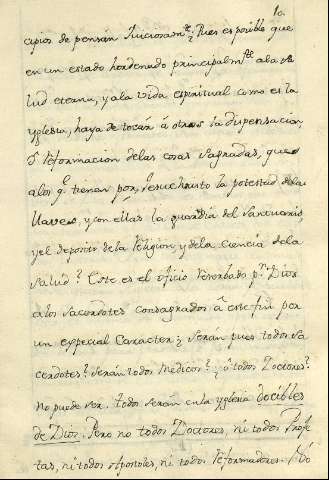 10.
cipios de pensar Juiciosamte? Pues es posible que
en un estado hordenado principalmte ala sa
lud eterna, y ala vida espiritual como es la
yglesia, haya de tocar á otros la dispensacion,
ó reformacion delas cosas Sagradas, que
alos qe tienen por Jesuchristo la potestad delas
llaves, y con ellas la guardia del Santuario,
y el deposito dela Religion, y dela ciencia dela
Salud? Este es el oficio reserbado pr Dios
alos Sacerdotes consagrados á este fin por
un especial Caracter; Serán pues todos Sa
cerdotes? Serán todos Medicos? ó todos Doctores?
No puede ser. todos serán en la yglesia docibles
de Dios. Pero no todos Doctores, ni todos Profe
tas, ni todos Apostoles, ni todos Reformadores.